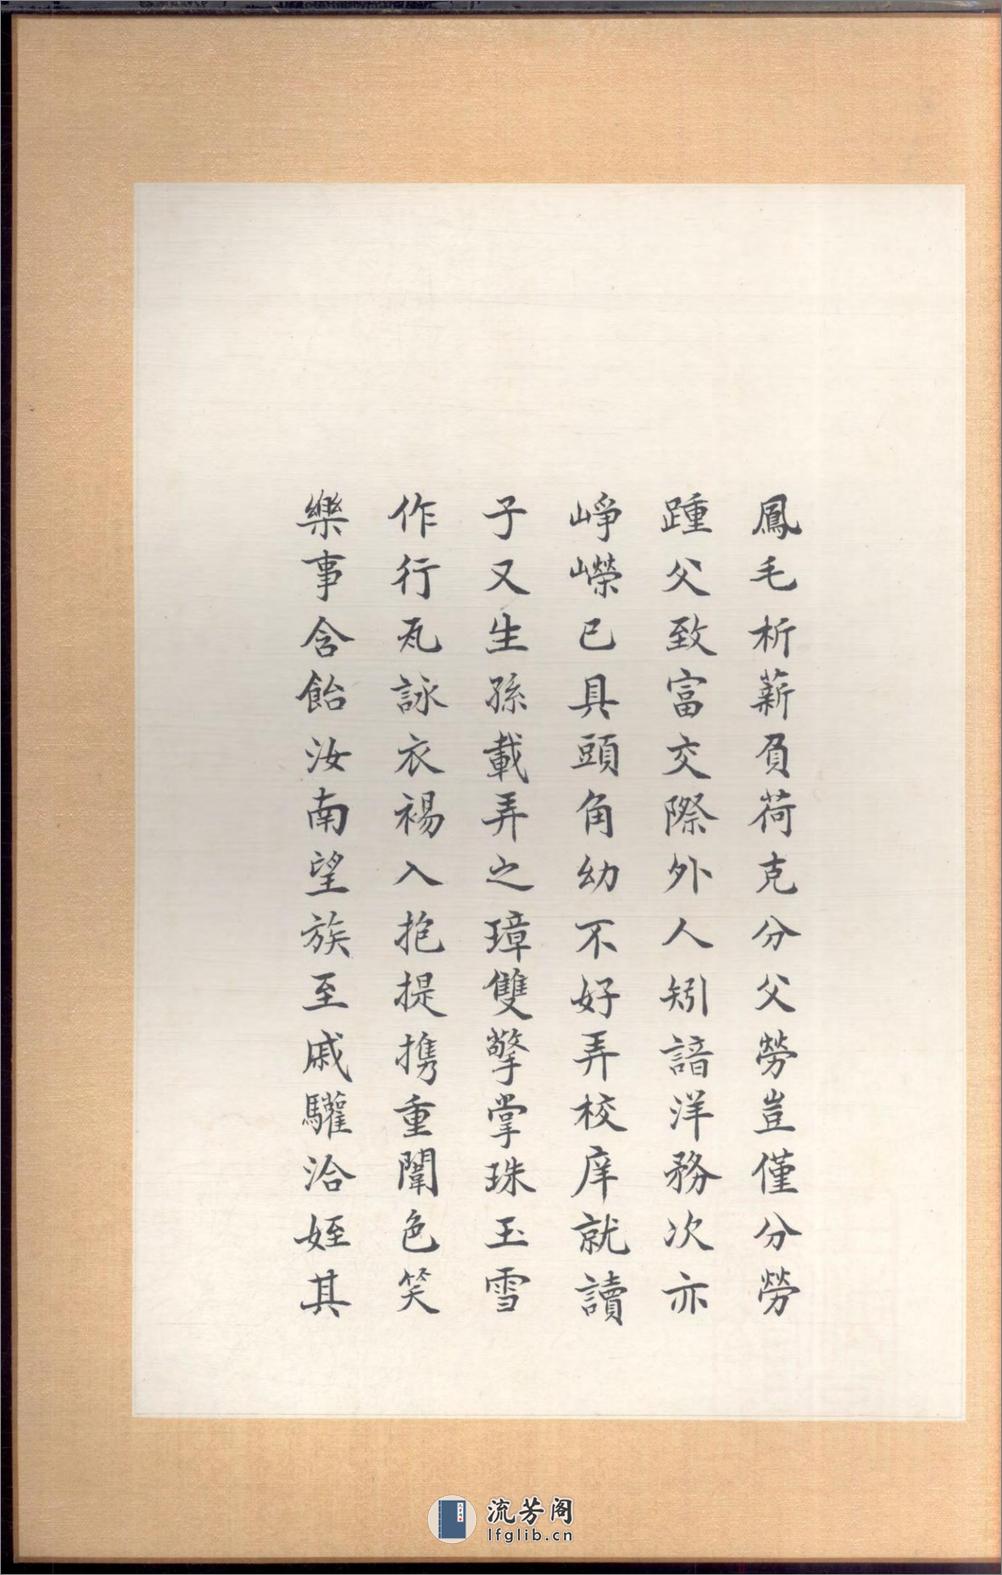 鳳毛析薪負荷克分父勞豈僅分勞
踵父致富交際外人矧諳洋務次亦
崢嶸已具頭角幼不好弄校庠就讀
子又生孫載弄之璋雙擎掌珠玉雪
作行瓦詠衣裼入抱提携重闈色笑
樂事含飴汝南望族至戚驩洽姪其
流芳阁
lfglib.cn